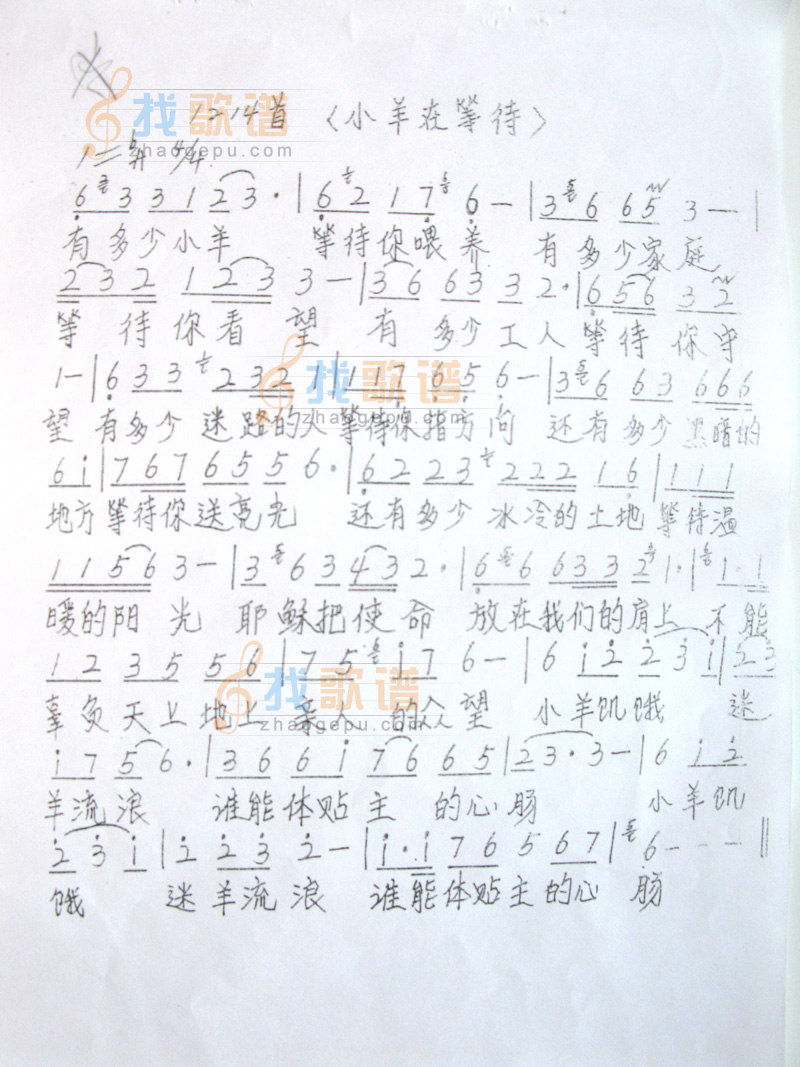 1214首 〈小羊在等待〉
4/4
6 3 3 1 2 3 · | 6 2 1 7 6 — | 3 6 6 5 3 — |
有多少小羊 等待你喂养 有多少家庭
2 3 2 1 2 3 3 — | 3 6 6 3 3 2 · | 6 5 6 3 2
等待你看望 有多少工人等待你守
1 — | 6 3 3 2 3 2 1 | 1 1 7 6 5 6 — | 3 6 6 3 6 6 6
望 有多少迷路的人等待你指方向 还有多少黑暗的
6 i | 7 6 7 6 5 5 6 · | 6 2 2 3 2 2 2 1 6 | 1 1 1
地方等待你送亮光 还有多少冰冷的土地等待温
1 1 5 6 3 — | 3 6 3 4 3 2 · | 6 6 6 3 3 2 1 · | 1 · 1
暖的阳光 耶稣把使命 放在我们的肩上 不能
1 2 3 5 5 6 | 7 5 i 7 6 — | 6 i 2 2 3 i | 2 3
辜负天上地上亲人的 望 小羊饥饿 迷
i 7 5 6 · | 3 6 6 i 7 6 6 5 | 2 3 · 3 — | 6 i 2
羊流浪 谁能体贴主的心肠 小羊饥
2 3 i | 2 2 3 2 — | i · i 7 6 5 6 7 | 6 — — — ‖
饿 迷羊流浪 谁能体贴主的心肠
找歌谱
zhaogepu.com
找歌谱
zhaogepu.com
找歌谱
zhaogepu.com
找歌谱
zhaogepu.com